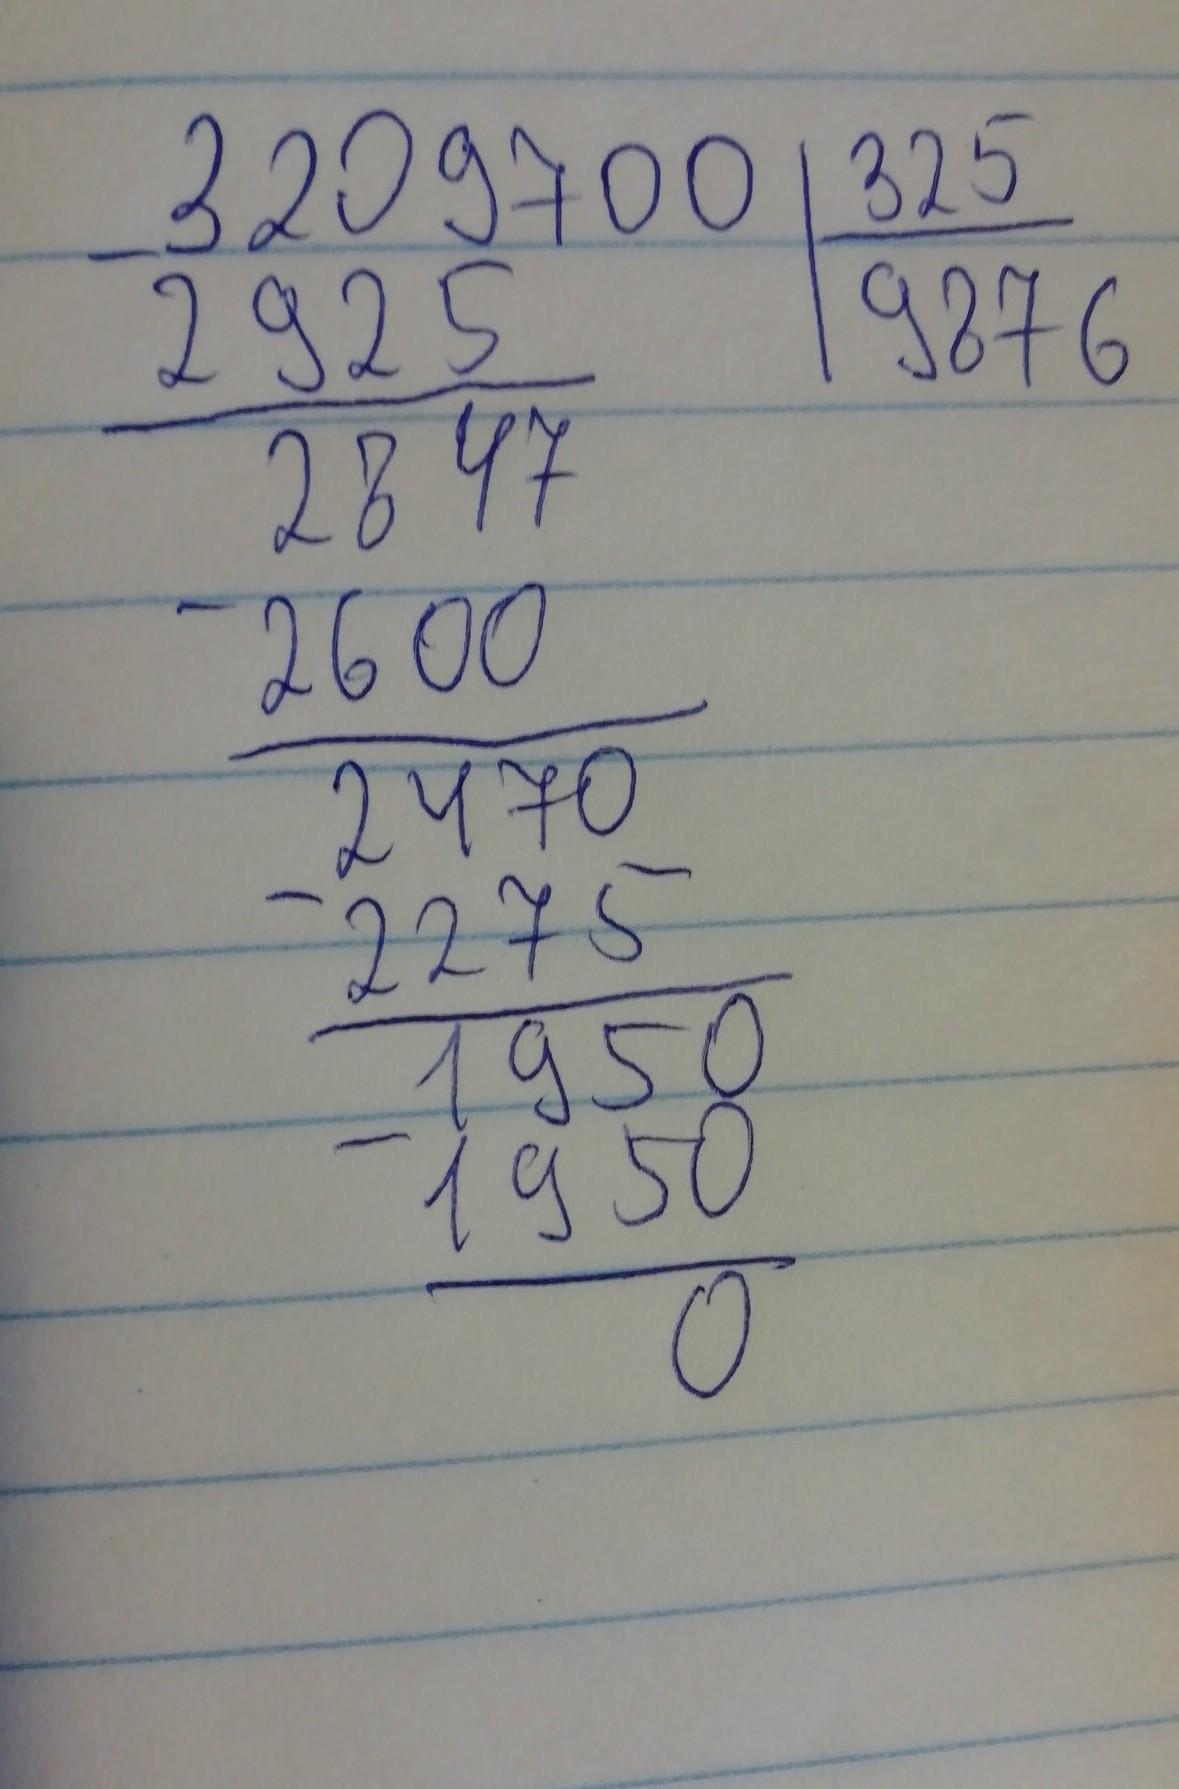 3209700 325
- 2925 9876
2847
- 2600
2470
- 2275
1950
- 1950
0